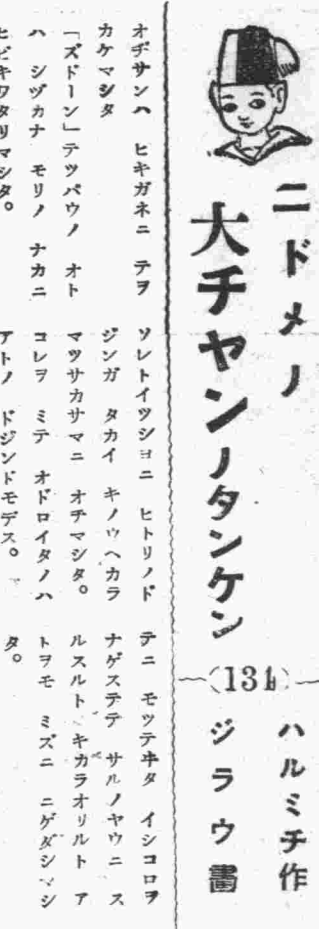 ニドメノ
大チヤンノタンケン
(131)
ハルミチ作
ジラウ畵
オヂサンハ ヒキガネニ テヲ
カケマシタ
「ズドーン」テツパウノ オト
ハ シヅカナ モリノ ナカニ
ヒビキワタリマシタ。
ソレトイツシヨニ ヒトリノド
ジンガ タカイ キノウヘカラ
マツサカサマニ オチマシタ。
コレヲ ミテ オドロイタノハ
アトノ ドジンドモデス。
テニ モツテヰタ イシコロヲ
ナゲステテ サルノヤウニ ス
ルスルト キカラオリルト ア
トヲモ ミズニ ニゲダシマシ
タ。